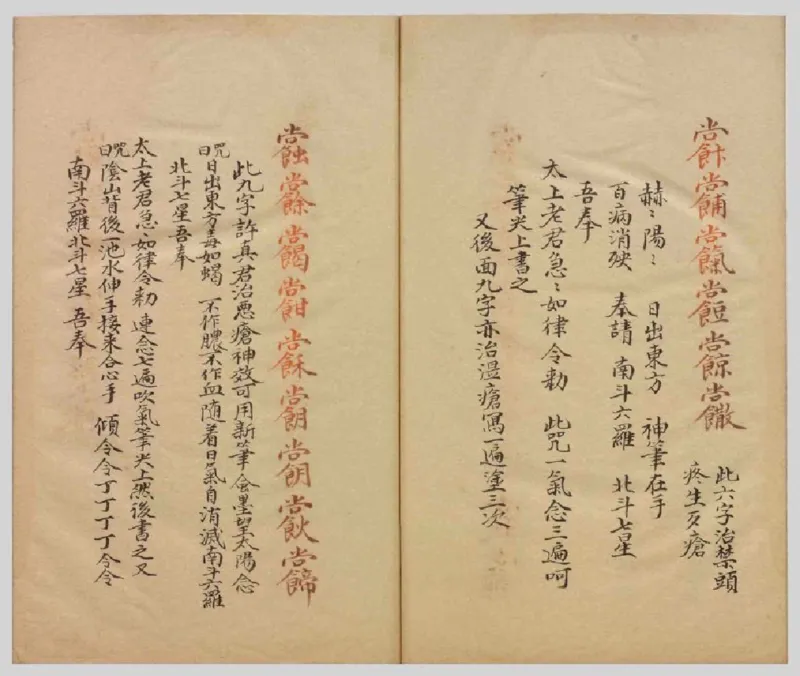 此六字治禁頭
疼生歹瘡
赫〻陽〻 日出東方 神筆在手
百病消殃 奉請 南斗六羅 北斗七星
吾奉
太上老君急〻如律令勑 此咒一氣念三遍呵
筆尖上書之
又後面九字亦治瘡寫一遍塗三次
此九字許真君治悪瘡神效可用新筆含墨望太陽念
咒曰日出東方毒如蝎 不作膿不作血随着日氣自消滅南斗六羅
北斗七星吾奉
太上老君急〻如律令勑 連念七遍吹氣筆尖上然後書之又
咒曰陰山背後一池水伸手接來合心手 傾令令丁丁丁丁令令
南斗六羅北斗七星 吾奉